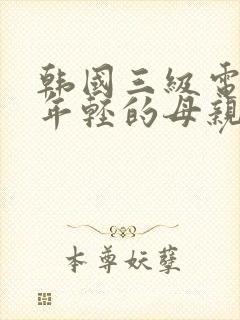 韩國三級電
年輕的母親
本尊妖孽